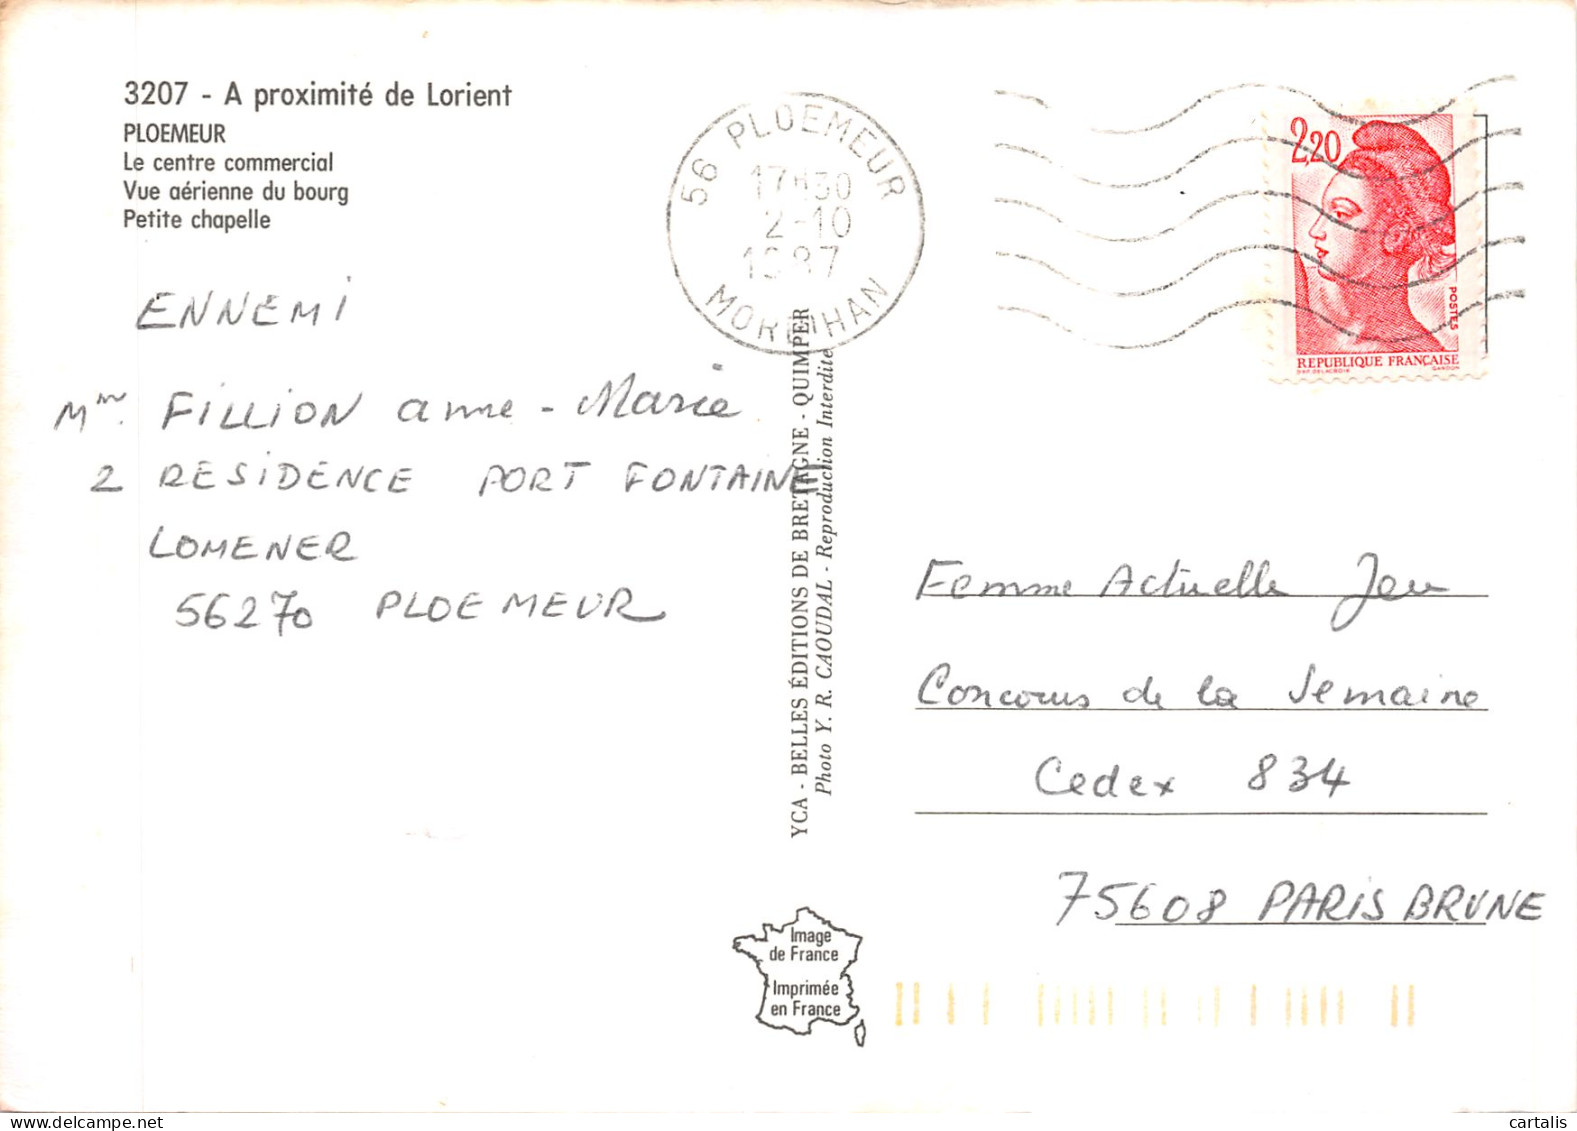 3207 - A proximité de Lorient
PLOEMEUR
Le centre commercial
Vue aérienne du bourg
Petite chapelle
ENNEMI
Mme FILLION anne-Marie
2 RESIDENCE PORT FONTAINE
LOMENER
56270 PLOEMEUR
56 PLOEMEUR
17H30
2-10
1987
MORBIHAN
2,20
POSTES
REPUBLIQUE FRANÇAISE
D'AP. DELACROIX GANDON
YCA - BELLES ÉDITIONS DE BRETAGNE - QUIMPER
Photo Y. R. CAOUDAL - Reproduction Interdite
Femme Actuelle Jeu
Concours de la Semaine
Cedex 834
75608 PARIS BRUNE
Image
de France
Imprimée
en France
cartalis